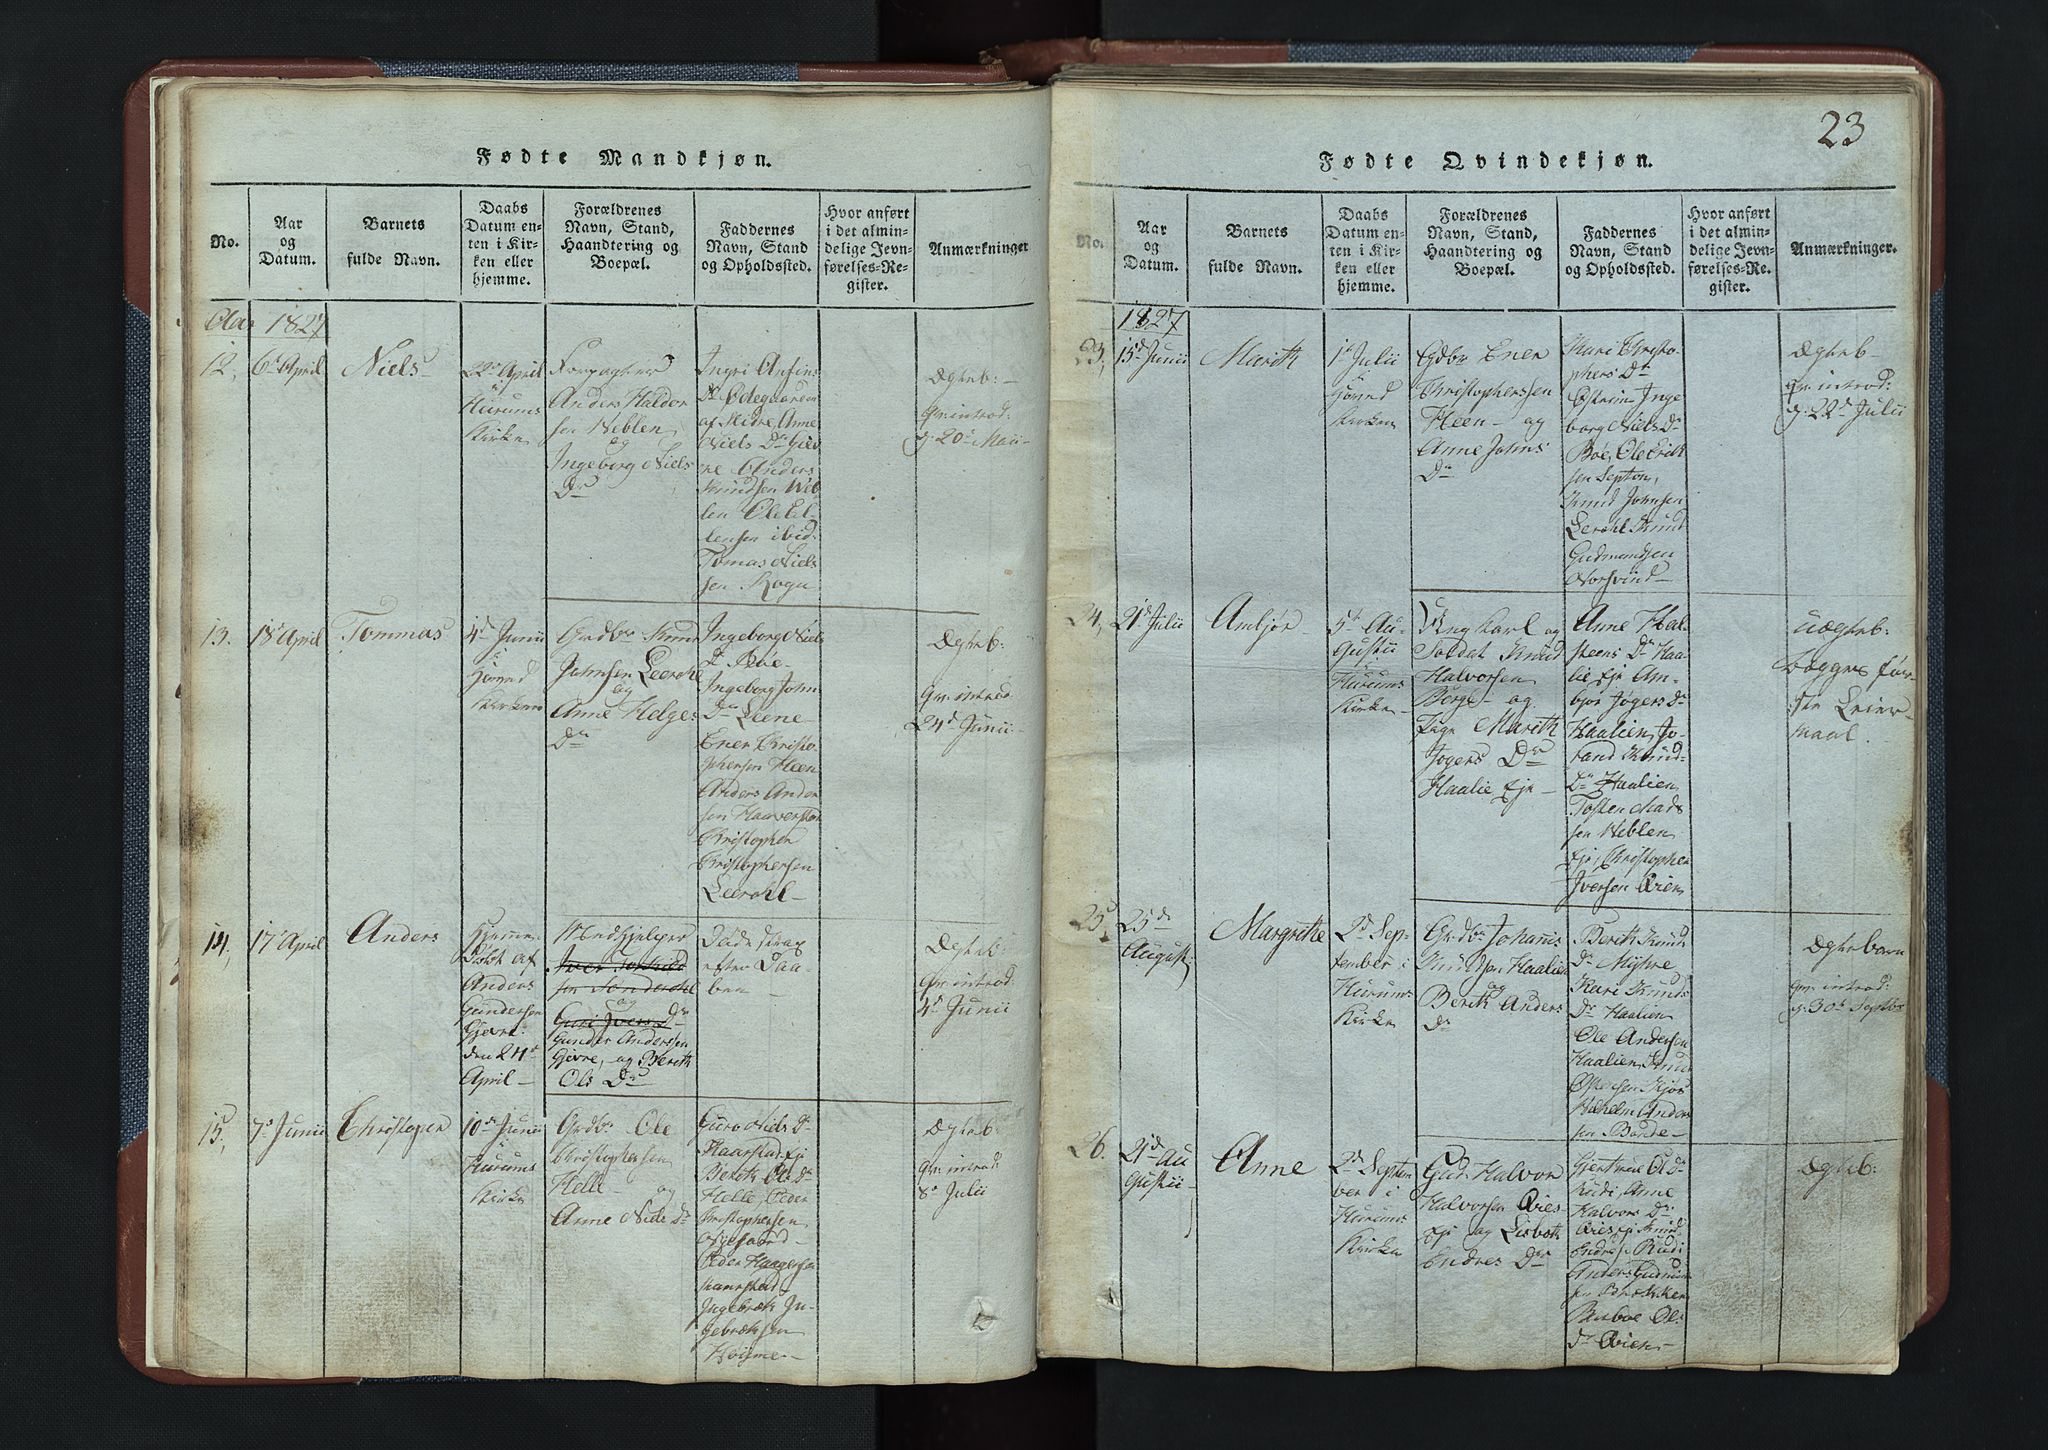 23
Fødte Mandkjøn.
No.
Aar
og
Datum.
Barnets
fulde Navn.
Daabs
Datum en-
ten i Kir-
ken eller
hjemme.
Forældrenes
Navn, Stand,
Haandtering og
Boepæl.
Faddernes
Navn, Stand
og Opholdssted.
Hvor anført
i det almin-
delige Jevn-
førelses-Re-
gister.
Anmærkninger
Aar 1827
12,
6d April
Niels
22d April
i
Hurums
Kirke
Anders Haldor
sen Neblen
og
Ingeborg Niels
Dr
Ingri
Dr Ødegaarden
af Anne
Niels Dr Giev
re Anders
Knudsen Neb
len Ole El
lensen ibid:
Tomas Niels
sen Rogn
Ægteb:
qv: introd:
d: 20d Maii
13.
18d April
Tommas
4d Junii
i
Kirken
Grdbr Knud
Johnsen Leerohl
og
Anne Helges
Dr
Ingeborg Niels
Dr Bøe
Ingeborg John
Dr Leene
Ener Christo-
phersen Heen
Anders Ander
sen Haaverstad
Christopher
Christophersen
Leerohl
Ægteb:
qv: introd:
24d Junii
14,
17d April
Anders
Hjemme-
døbt af
Anders
Gundersen
Gjevre
den 24d
April
Iver
sen Sønderohl
og
Guri Ivers Dr
Gunder Anderssen
Gjevre, og Berith
Ols Dr
Døde strax
efter Daa-
ben
Ægteb:
qv: introd:
4d Junii
15,
7d Junii
Christopher
10d Junii
i
Hurums
Kirke
Grdbr: Ole
Christophersen
Helle og
Anne Niels Dr
Guro Niels Dr
Haarstad Eje
Berith Ols Dr
Helle, Peder
Christophersen
Peder Haagensen
Haarstad
Ingebrekt In-
gebrektsen
Ægteb:
qv: introd:
8d Julii
Fødte Qvindekjøn.
No.
Aar
og
Datum.
Barnets
fulde Navn.
Daabs
Datum en-
ten i Kir-
ken eller
hjemme.
Forældrenes
Navn, Stand,
Haandtering og
Boepæl.
Faddernes
Navn, Stand
og Opholdssted.
Hvor anført
i det almin-
delige Jevn-
førelses-Re-
gister.
Anmærkninger.
1827
23,
15d Junii
Marith
1d Julii
i
Kirken
Gdbr Ener
Christopherssen
Heen og
Anne Johns
Dr
Kari Christo-
phers Dr
Inge
borg Niels Dr
Bøe, Ole Erik
sen
Knud Johnsen
Lerohl Knud
Gudmundsen
Ægteb:
qv: introd:
d: 22d Julii
24,
21d Julii
Ambjør
5d Au-
gustii
Hurums
Kirke
Ungkarl og
Soldat Knud
Halvorsen
Berge og
Pige Marith
Jøgers Dr
Haalie Eje
Anne Hal-
steens Dr Haa-
lie Eje Am-
bjor Jøgers Dr
Haalien, Jo-
rand Knud-
Dr Haalien,
Tosten Mads
sen Neblen
Eje, Christopher
Iversen Qvien
Uægteb:
begges før-
ste Leier-
maal.
25,
25de
August
Margrethe
2d Sep-
tember i
Hurums
Kirke
Grdbr Johannis
Knudsen Haalien
og
Berith Anders
Dr
Berith Knuds
Dr Myhre
Kari Knuds
Dr Haalien
Ole Andersen
Haalien, Knud
Wilhelm Anders
sen
Ægtebarn
qv: introd:
d: 30d Septbr
26.
21d Au
gustii
Anne
2d Septem
ber i
Hurums
Kirken
Gud: Halvor
Halvorsen Qvies
Eje og Lisbeth
Endres Dr
Gjertrue Ol Dr
Rudi, Anne
Halvors Dr
Qvies Ej: Knud
Endres: Rudi
Anders Gudmun
sen
Ol:
Dr Qvien
Ægteb: